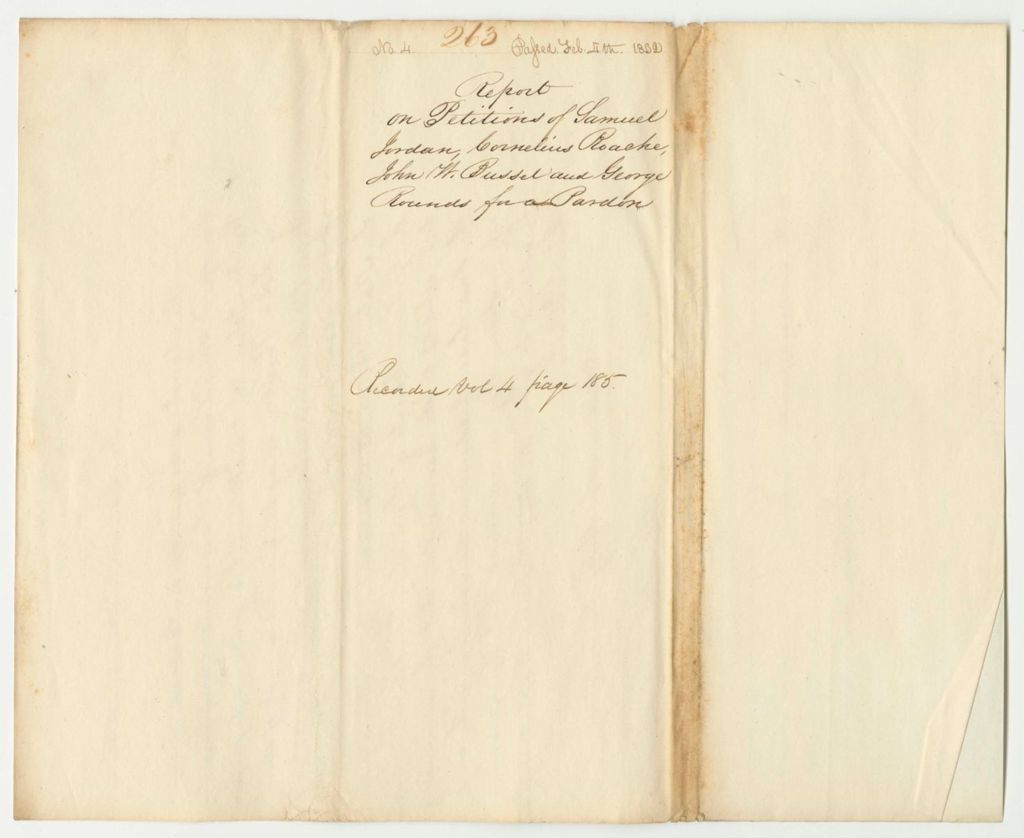 No. 4 263 Passed Feb. 11th. 1832
Report
on Petitions of Samuel
Jordan, Cornelius Roache,
John W. Pussel and George
Rounds for a Pardon
Recorded Vol 4 page 185.